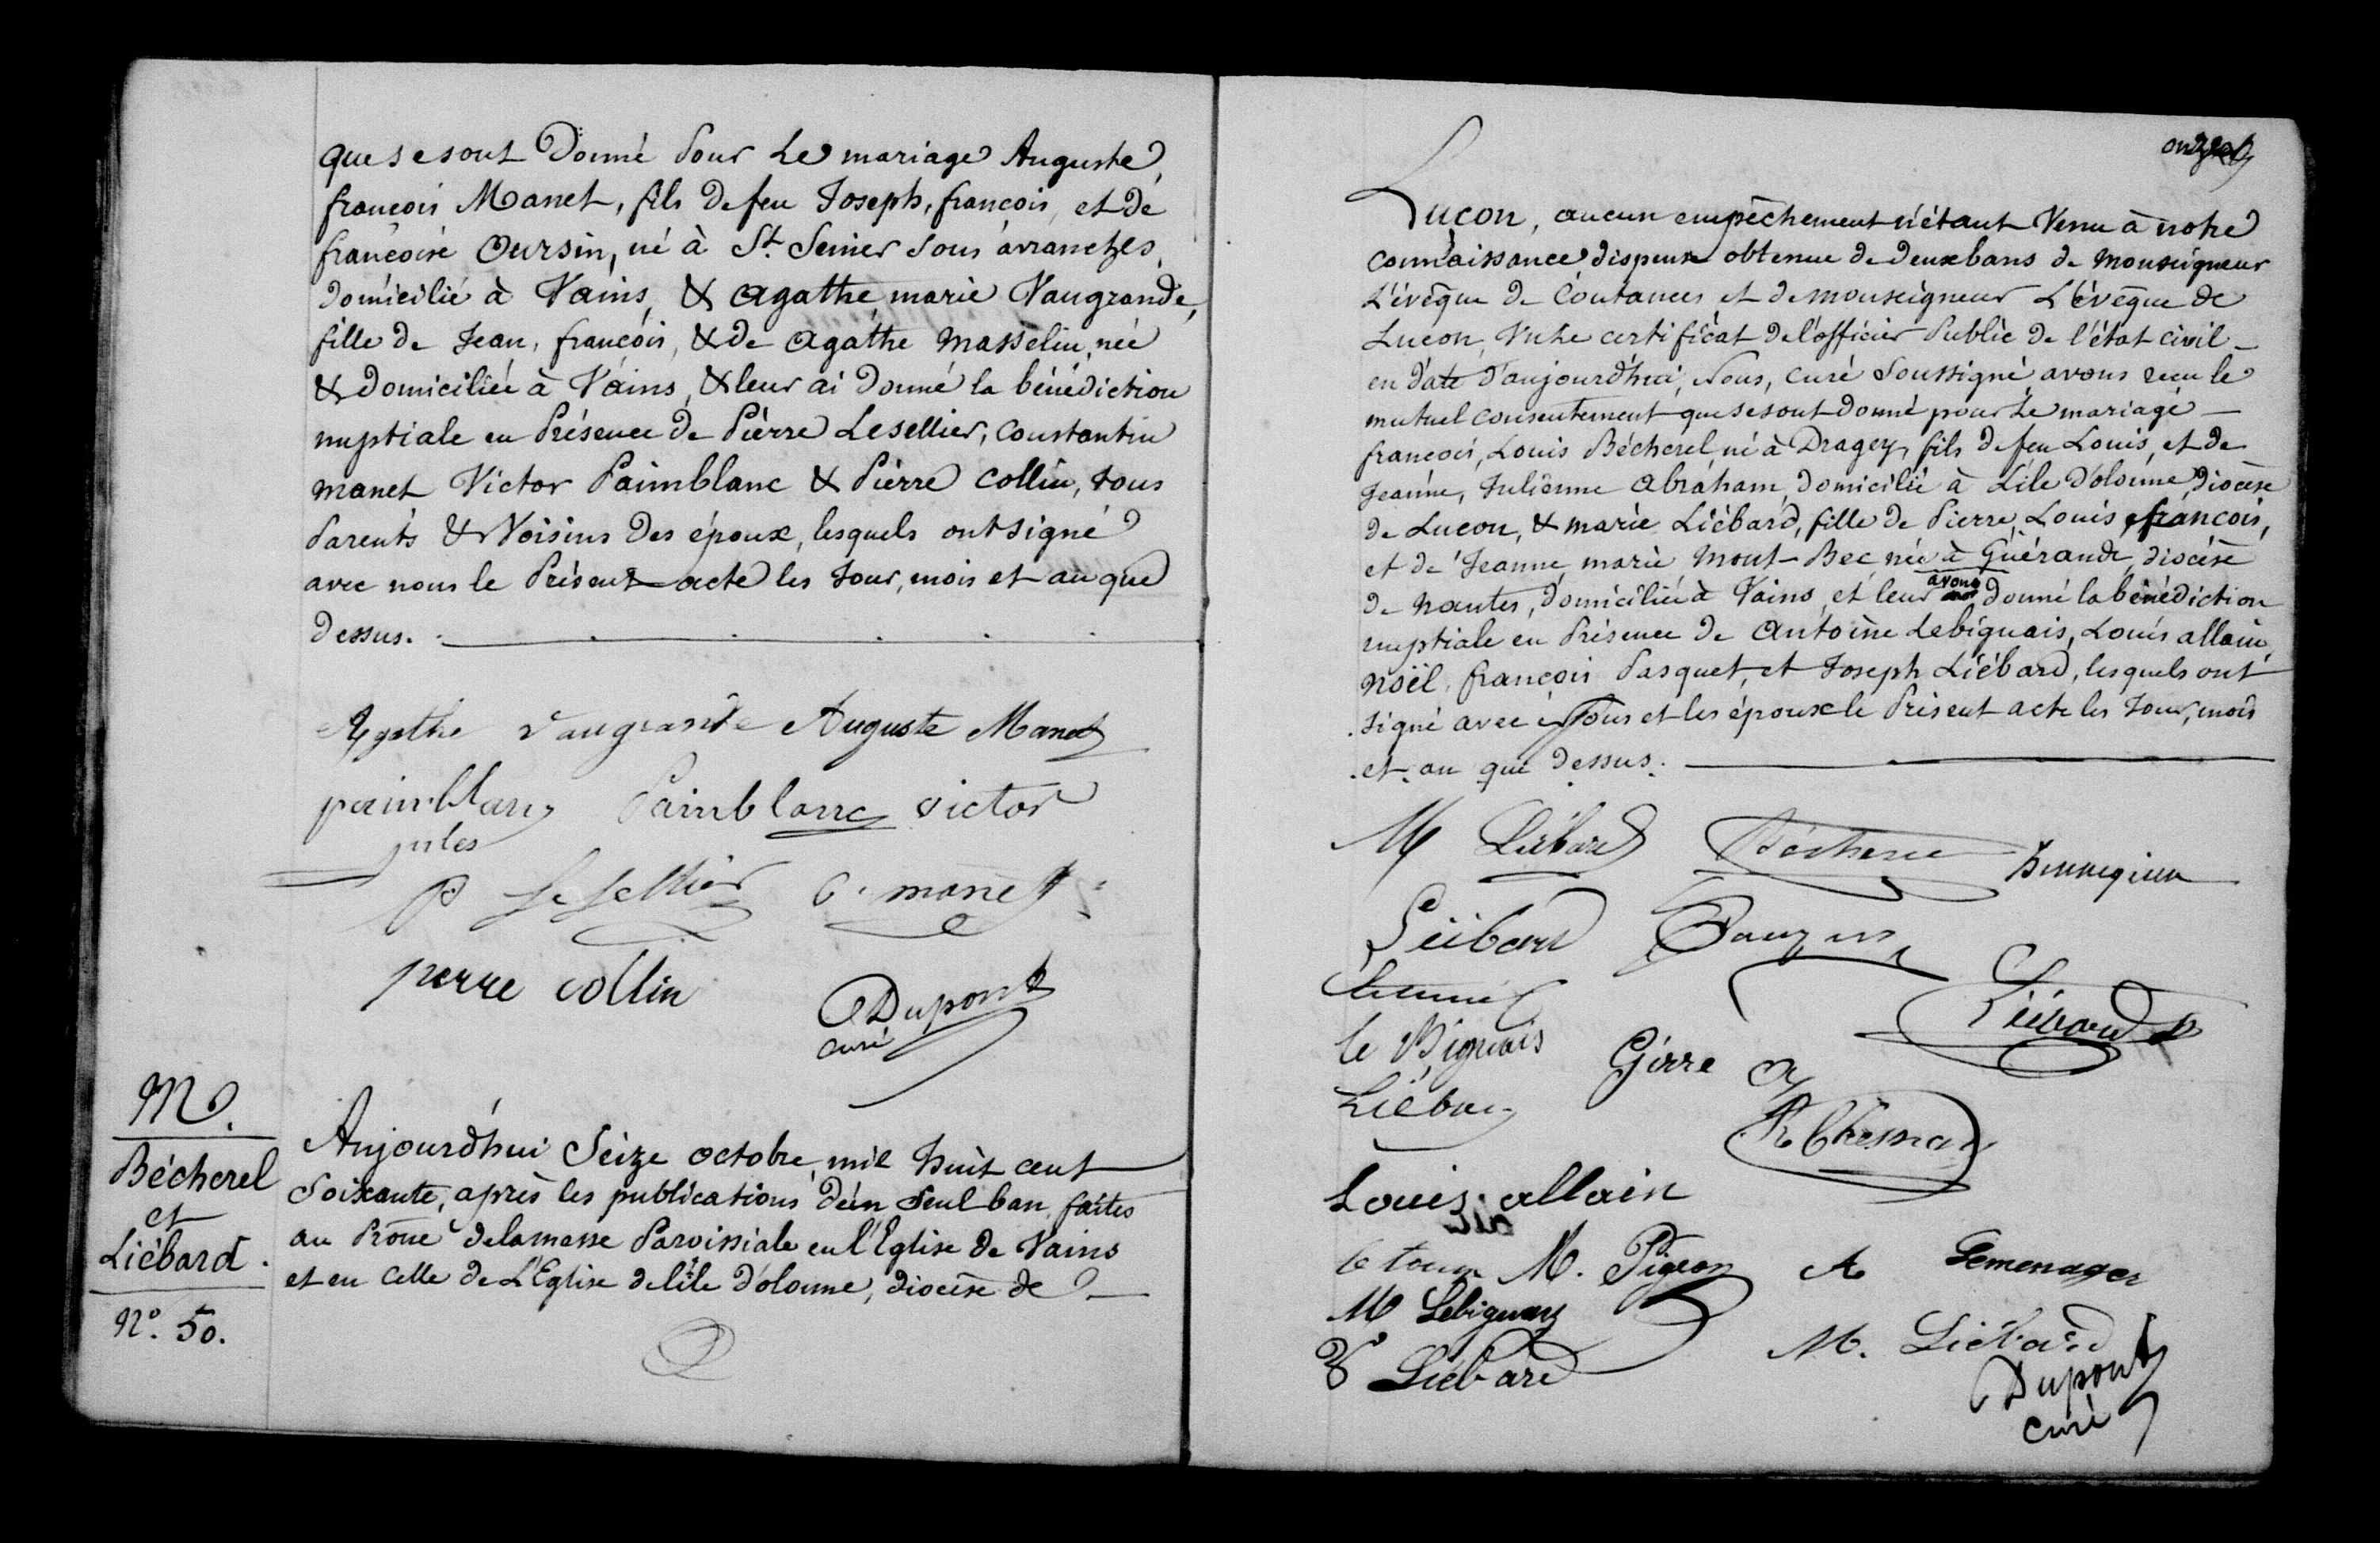 que se sont Donné Pour Le mariage Auguste,
françois Manet, fils de feu Joseph, françois, et de
françoise Oursin, né à St. Senier sous avranches,
Domicilié à Vains, & agathe marie Vaugrande,
fille de Jean, françois, & de agathe Masselin, née
& Domiciliée à Vains, & leur ai Donné la bénédiction
nuptiale en Présence de Pierre Lesellier, Constantin
manet Victor Paimblanc & Pierre Collin, tous
Parents & Voisins Des époux, lesquels ont signé
avec nous le Présent acte les Jour, mois et an que
Dessus.
Agathe Vaugrande Auguste Manet
paimblanc Paimblanc victor
jules
P LeSellier C. manet
pierre collin
Dupont
curé
M.
Bécherel
et
Liébard.
N°. 50.
Aujourd'hui Seize octobre, mil huit cent
Soixante, après les publications d'un Seul ban, faites
au Prône de la messe Paroissiale en l'Eglise de Vains
et en celle de L'Eglise de l'ile d'olonne, diocèse de
onze
Luçon, aucun empêchement n'étant Venu à notre
Connaissance, dispense obtenue de deux bans de Monseigneur
L'évêque de Coutances et de monseigneur L'évêque de
Luçon, Vu le certificat de l'officier Public de l'état civil
en date d'aujourd'hui, Nous, curé Soussigné, avons reçu le
mutuel consentement que se sont donné pour Le mariage
françois, Louis Bécherel, né à Dragey, fils de feu Louis, et de
Jeanne, Julienne Abraham, Domicilié à L'ile D'olonne Diocèse
de Luçon, & marie Liébard, fille de Pierre, Louis, françois,
et de Jeanne marie Mont-Bec, née à Guérande, diocèse
de Nantes, domiciliée à Vains, et leur avons donné la bénédiction
nuptiale en Présence de Antoine Lebignais, Louis allain,
Noël, françois Pasquet, et Joseph Liébard, lesquels ont
signé avec Nous et les époux le Présent acte les Jour, mois
et an que Dessus.
M Liébard Bécherel
Liébard
Liébard
le Bignais Girre
Liébard
Louis allain
M. Pigeon A Lemenager
M Lebignais
Liébard M. Liébard
Dupont
curé